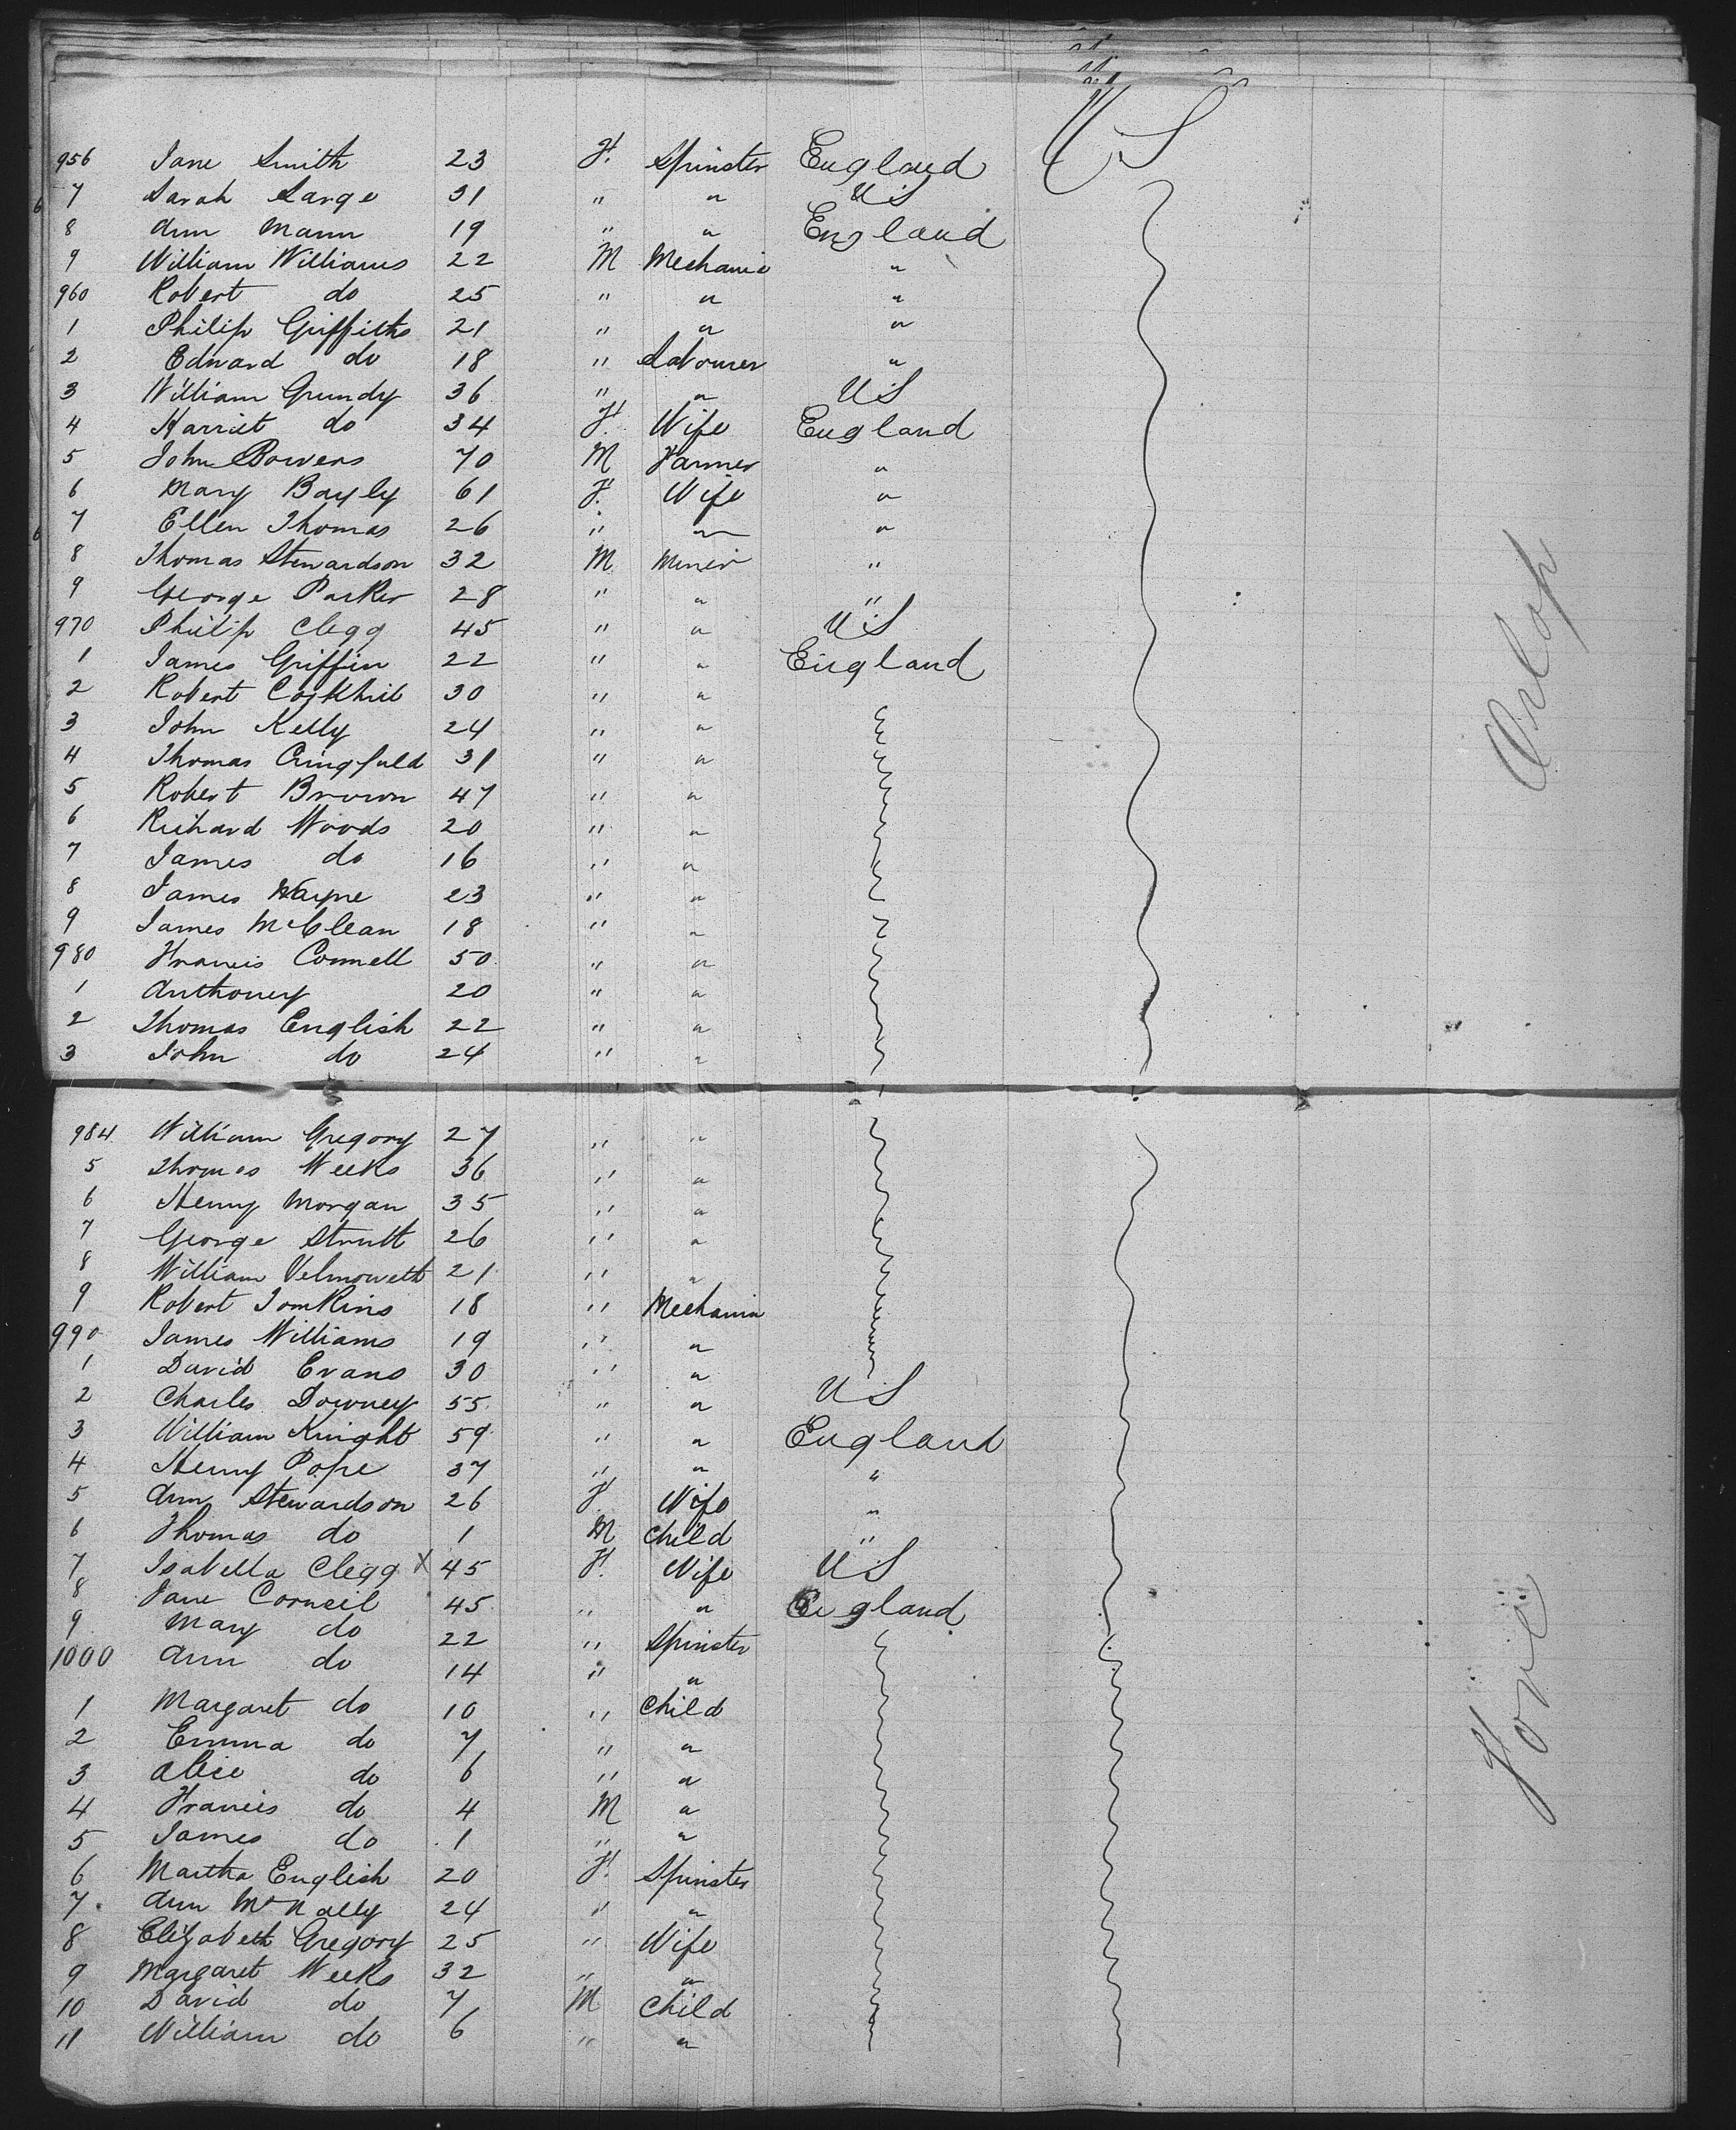 956 Jane Smith 23 F. Spinster England U S
7 Sarah Large 31 " " U S
8 Ann Mann 19 " " England
9 William Williams 22 M Mechanic "
960 Robert do 25 " " "
1 Philip Griffiths 21 " " "
2 Edward do 18 " Labourer "
3 William Grundy 36 " " U S
4 Harriet do 34 F. Wife England
5 John Bowers 70 M Farmer "
6 Mary Bayly 61 F. Wife "
7 Ellen Thomas 26 " " "
8 Thomas Stewardson 32 M Miner "
9 George Parker 28 " " "
970 Philip Clegg 45 " " U S
1 James Griffin 22 " " England
2 Robert 30 " "
3 John Kelly 24 " "
4 Thomas 31 " "
5 Robert Brown 47 " "
6 Richard Woods 20 " "
7 James do 16 " "
8 James Wayne 23 " "
9 James McClean 18 " "
980 Francis Connell 50 " "
1 Anthoney 20 " "
2 Thomas English 22 " "
3 John do 24 " "
Orlop
984 William Gregory 27 " "
5 Thomas Weeks 36 " "
6 Henry Morgan 35 " "
7 George Strutt 26 " "
8 William 21 " "
9 Robert Tomkins 18 " Mechanic
990 James Williams 19 " "
1 David Evans 30 " "
2 Charles Downey 55 " " U S
3 William Knight 59 " " England
4 Henry Pope 37 " " "
5 Ann Stewardson 26 F Wife "
6 Thomas do 1 M Child "
7 Isabella Clegg X 45 F. Wife U S
8 Jane Corneil 45 " " England
9 Mary do 22 " Spinster
1000 Ann do 14 " "
1 Margaret do 10 " Child
2 Emma do 7 " "
3 Alice do 6 " "
4 Francis do 4 M "
5 James do 1 " "
6 Martha English 20 F. Spinster
7 Ann McNally 24 " "
8 Elizabeth Gregory 25 " Wife
9 Margaret Weeks 32 " "
10 David do 7 M Child
11 William do 6 " "